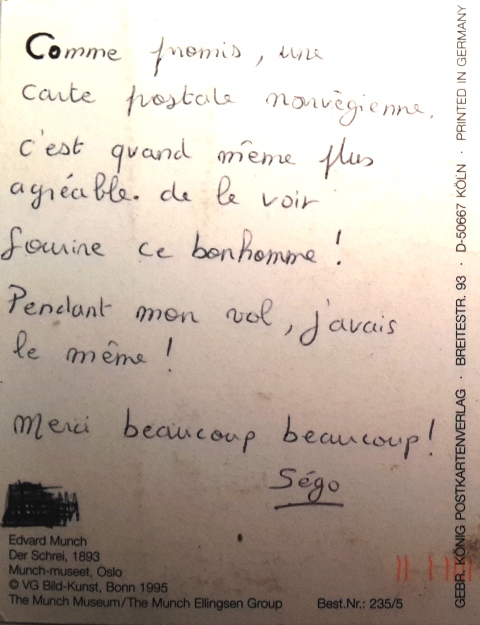 Comme promis, une
carte postale norvègienne.
c'est quand même plus
agréable. de le voir
sourire ce bonhomme !
Pendant mon vol, j'avais
le même !
Merci beaucoup beaucoup !
Ségo
Edvard Munch
Der Schrei, 1893
Munch-museet, Oslo
© VG Bild-Kunst, Bonn 1995
The Munch Museum/The Munch Ellingsen Group
Best.Nr.: 235/5
GEBR. KÖNIG POSTKARTENVERLAG · BREITESTR. 93 · D-50667 KÖLN · PRINTED IN GERMANY